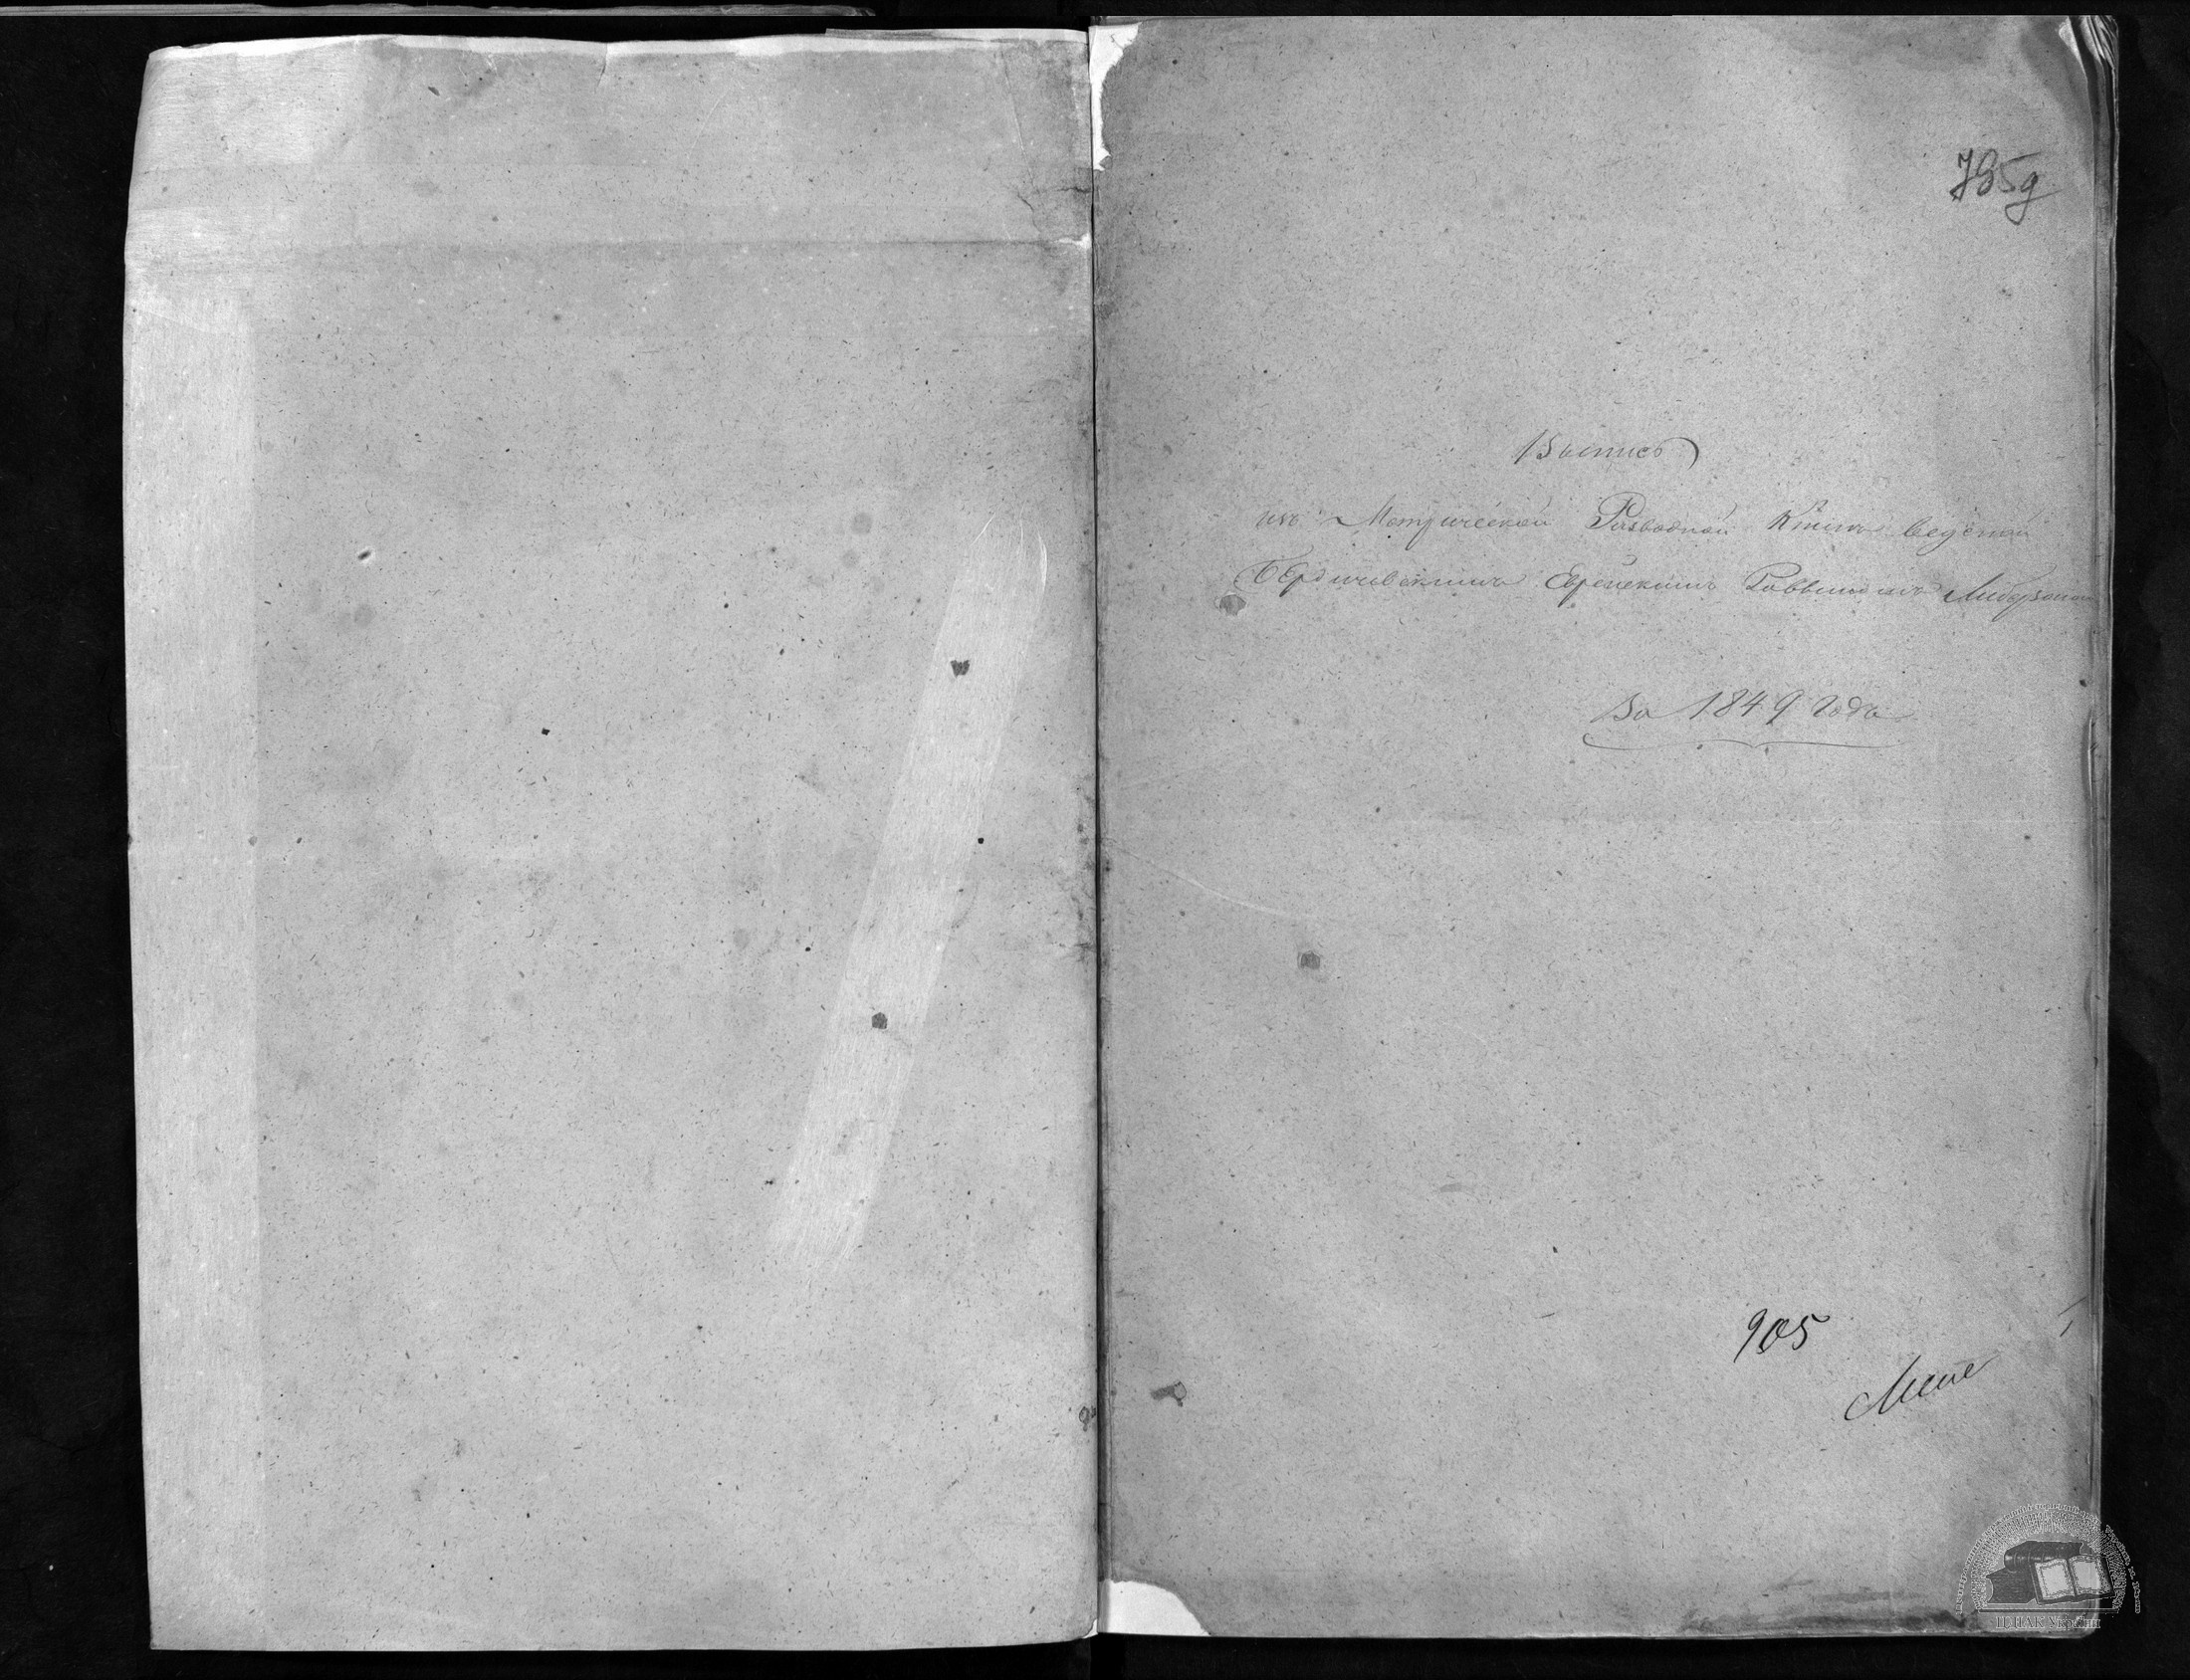 785д
Выпись
изъ Метрической Разводной Книги веденой
Бердичевскимъ Еврейскимъ Раввиномъ Либерзономъ
За 1849 Года
905
ЦДІАК України